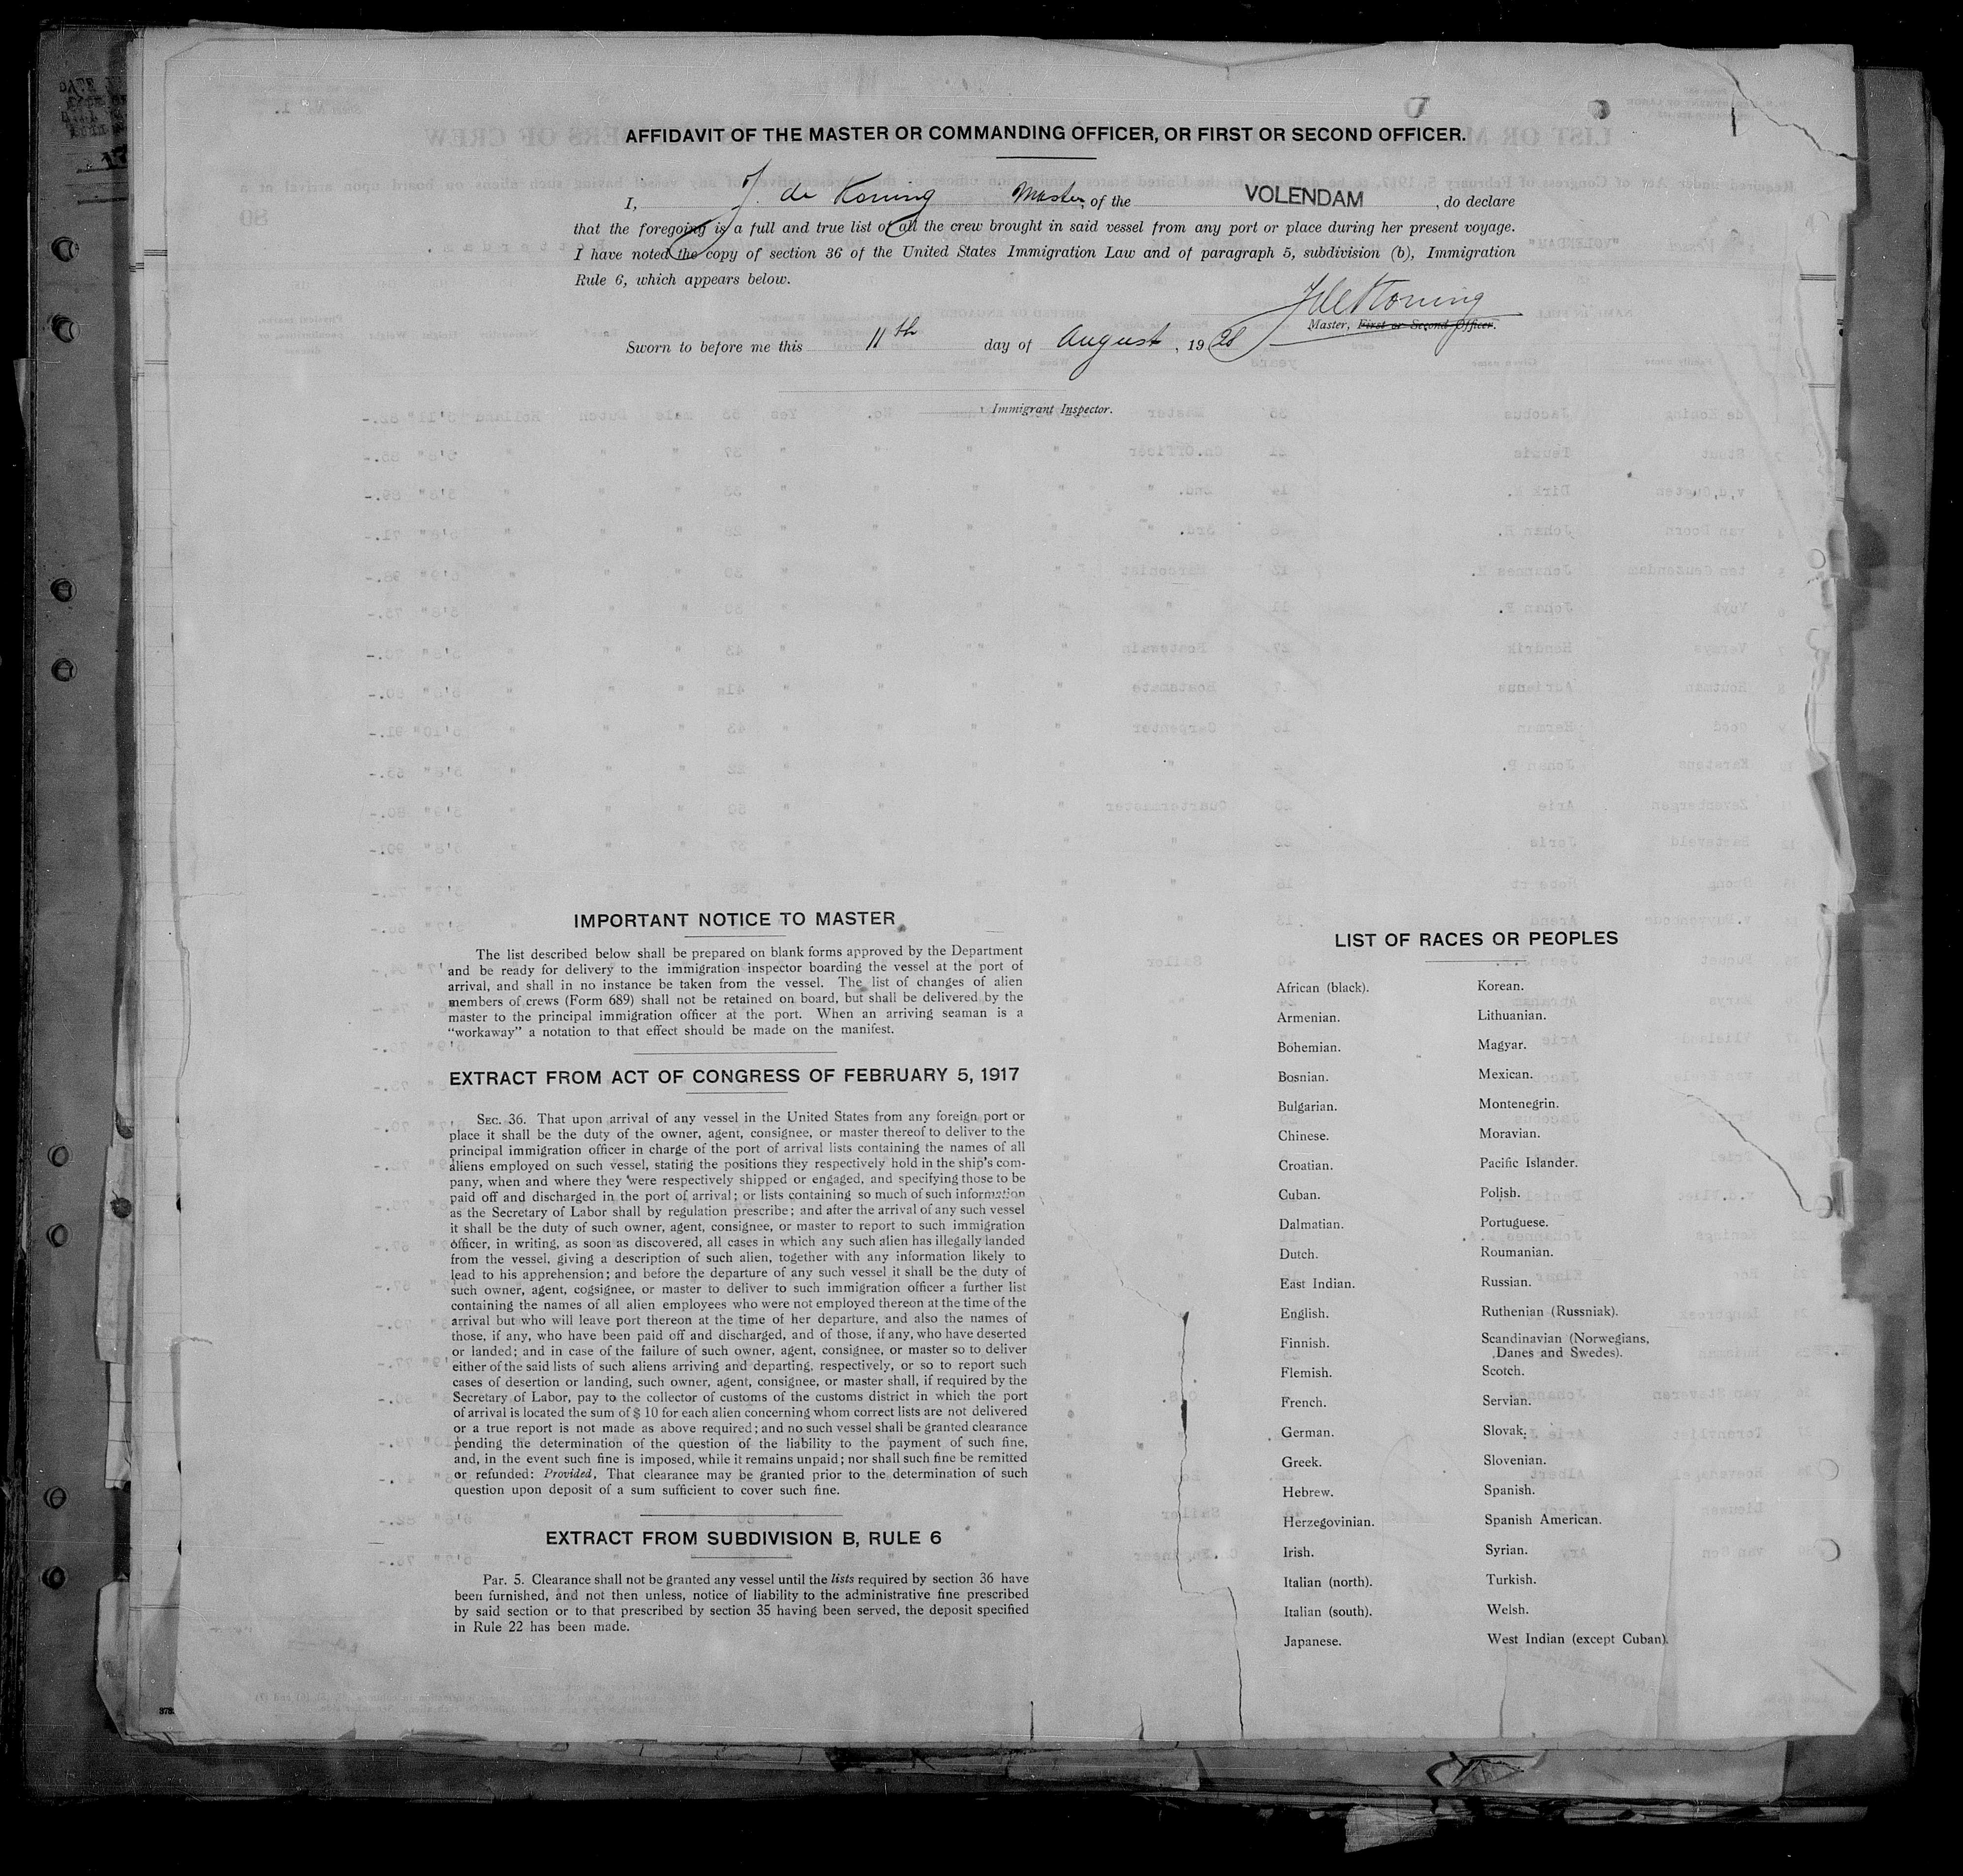 AFFIDAVIT OF THE MASTER OR COMMANDING OFFICER, OR FIRST OR SECOND OFFICER.
I, J. de Koning Master, of the VOLENDAM, do declare
that the foregoing is a full and true list of all the crew brought in said vessel from any port or place during her present voyage.
I have noted the copy of section 36 of the United States Immigration Law and of paragraph 5, subdivision (b), Immigration
Rule 6, which appears below.
JdeKoning
Master, First or Second Officer.
Sworn to before me this 11th day of August, 1928
Immigrant Inspector.
IMPORTANT NOTICE TO MASTER
The list described below shall be prepared on blank forms approved by the Department
and be ready for delivery to the immigration inspector boarding the vessel at the port of
arrival, and shall in no instance be taken from the vessel. The list of changes of alien
members of crews (Form 689) shall not be retained on board, but shall be delivered by the
master to the principal immigration officer at the port. When an arriving seaman is a
“workaway” a notation to that effect should be made on the manifest.
EXTRACT FROM ACT OF CONGRESS OF FEBRUARY 5, 1917
SEC. 36. That upon arrival of any vessel in the United States from any foreign port or
place it shall be the duty of the owner, agent, consignee, or master thereof to deliver to the
principal immigration officer in charge of the port of arrival lists containing the names of all
aliens employed on such vessel, stating the positions they respectively hold in the ship's com-
pany, when and where they were respectively shipped or engaged, and specifying those to be
paid off and discharged in the port of arrival; or lists containing so much of such information
as the Secretary of Labor shall by regulation prescribe; and after the arrival of any such vessel
it shall be the duty of such owner, agent, consignee, or master to report to such immigration
officer, in writing, as soon as discovered, all cases in which any such alien has illegally landed
from the vessel, giving a description of such alien, together with any information likely to
lead to his apprehension; and before the departure of any such vessel it shall be the duty of
such owner, agent, cogsignee, or master to deliver to such immigration officer a further list
containing the names of all alien employees who were not employed thereon at the time of the
arrival but who will leave port thereon at the time of her departure, and also the names of
those, if any, who have been paid off and discharged, and of those, if any, who have deserted
or landed; and in case of the failure of such owner, agent, consignee, or master so to deliver
either of the said lists of such aliens arriving and departing, respectively, or so to report such
cases of desertion or landing, such owner, agent, consignee, or master shall, if required by the
Secretary of Labor, pay to the collector of customs of the customs district in which the port
of arrival is located the sum of $ 10 for each alien concerning whom correct lists are not delivered
or a true report is not made as above required; and no such vessel shall be granted clearance
pending the determination of the question of the liability to the payment of such fine,
and, in the event such fine is imposed, while it remains unpaid; nor shall such fine be remitted
or refunded: Provided, That clearance may be granted prior to the determination of such
question upon deposit of a sum sufficient to cover such fine.
EXTRACT FROM SUBDIVISION B, RULE 6
Par. 5. Clearance shall not be granted any vessel until the lists required by section 36 have
been furnished, and not then unless, notice of liability to the administrative fine prescribed
by said section or to that prescribed by section 35 having been served, the deposit specified
in Rule 22 has been made.
LIST OF RACES OR PEOPLES
African (black).
Armenian.
Bohemian.
Bosnian.
Bulgarian.
Chinese.
Croatian.
Cuban.
Dalmatian.
Dutch.
East Indian.
English.
Finnish.
Flemish.
French.
German.
Greek.
Hebrew.
Herzegovinian.
Irish.
Italian (north).
Italian (south).
Japanese.
Korean.
Lithuanian.
Magyar.
Mexican.
Montenegrin.
Moravian.
Pacific Islander.
Polish.
Portuguese.
Roumanian.
Russian.
Ruthenian (Russniak).
Scandinavian (Norwegians,
Danes and Swedes).
Scotch.
Servian.
Slovak.
Slovenian.
Spanish.
Spanish American.
Syrian.
Turkish.
Welsh.
West Indian (except Cuban).